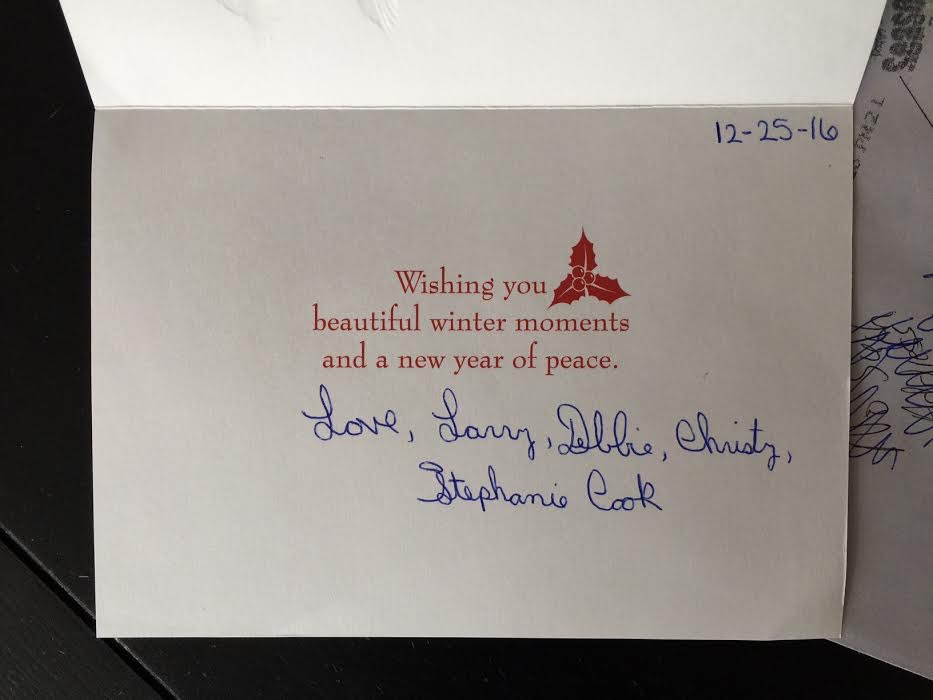 12-25-16
Wishing you
beautiful winter moments
and a new year of peace.
Love, Larry, Debbie, Christy,
Stephanie Cook